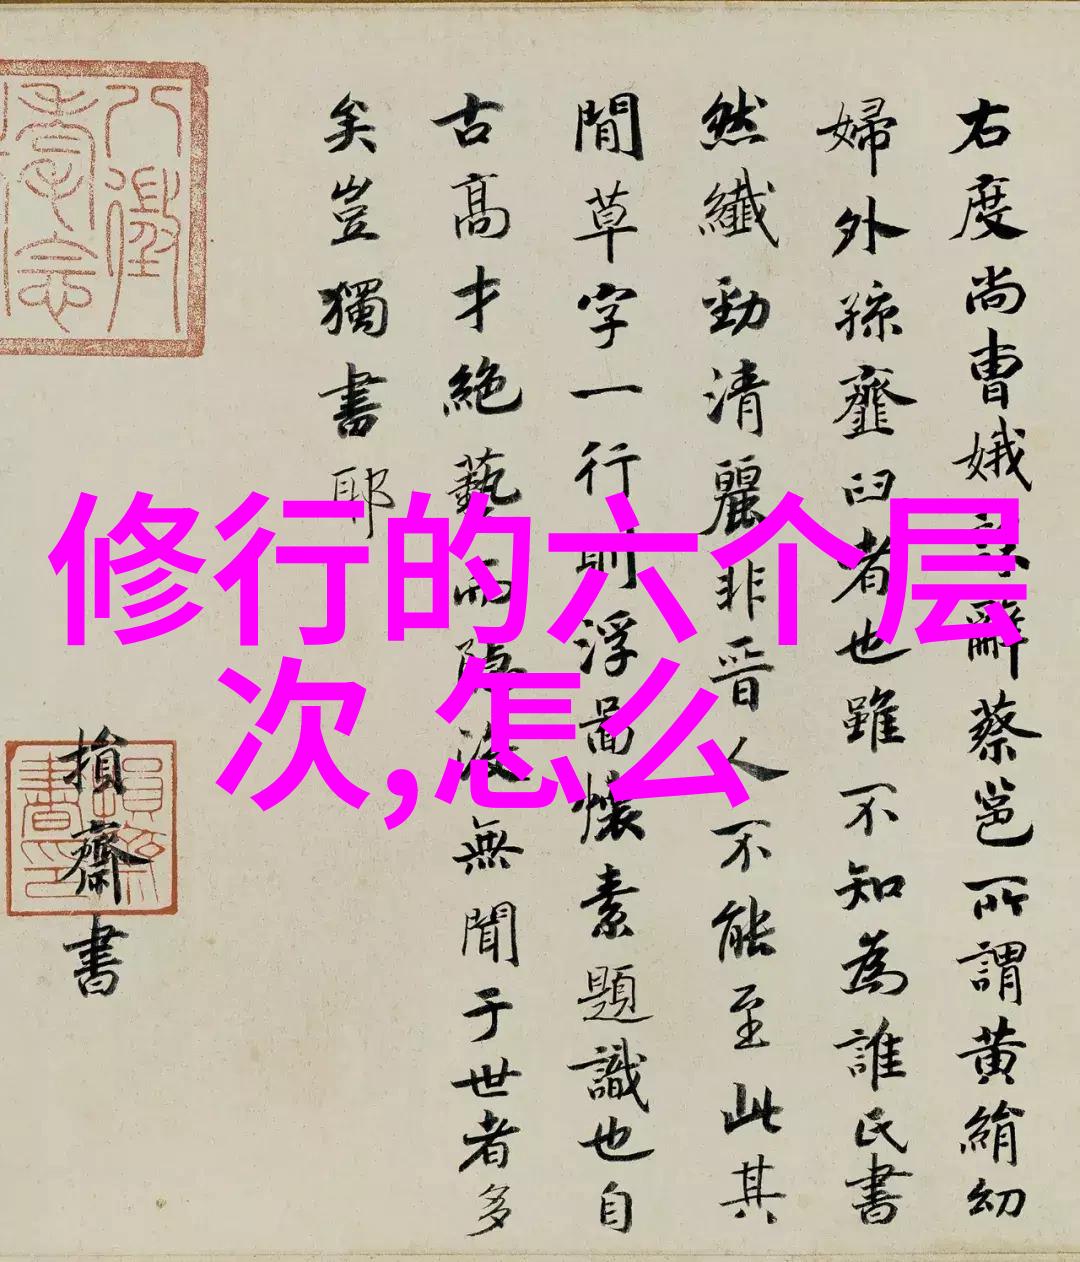 修行的六个层
次,怎么
右度尚曹娥誄辭蔡邕所謂黄絹幼
婦外孫虀臼者也雖不知為誰氏書
然纖勁清麗非晋人不能至此其
間草字一行則浮啚懷素題識也自
古高才絶藝而隱没無聞于世者多
矣豈獨書耶
損齋書
損齋書印